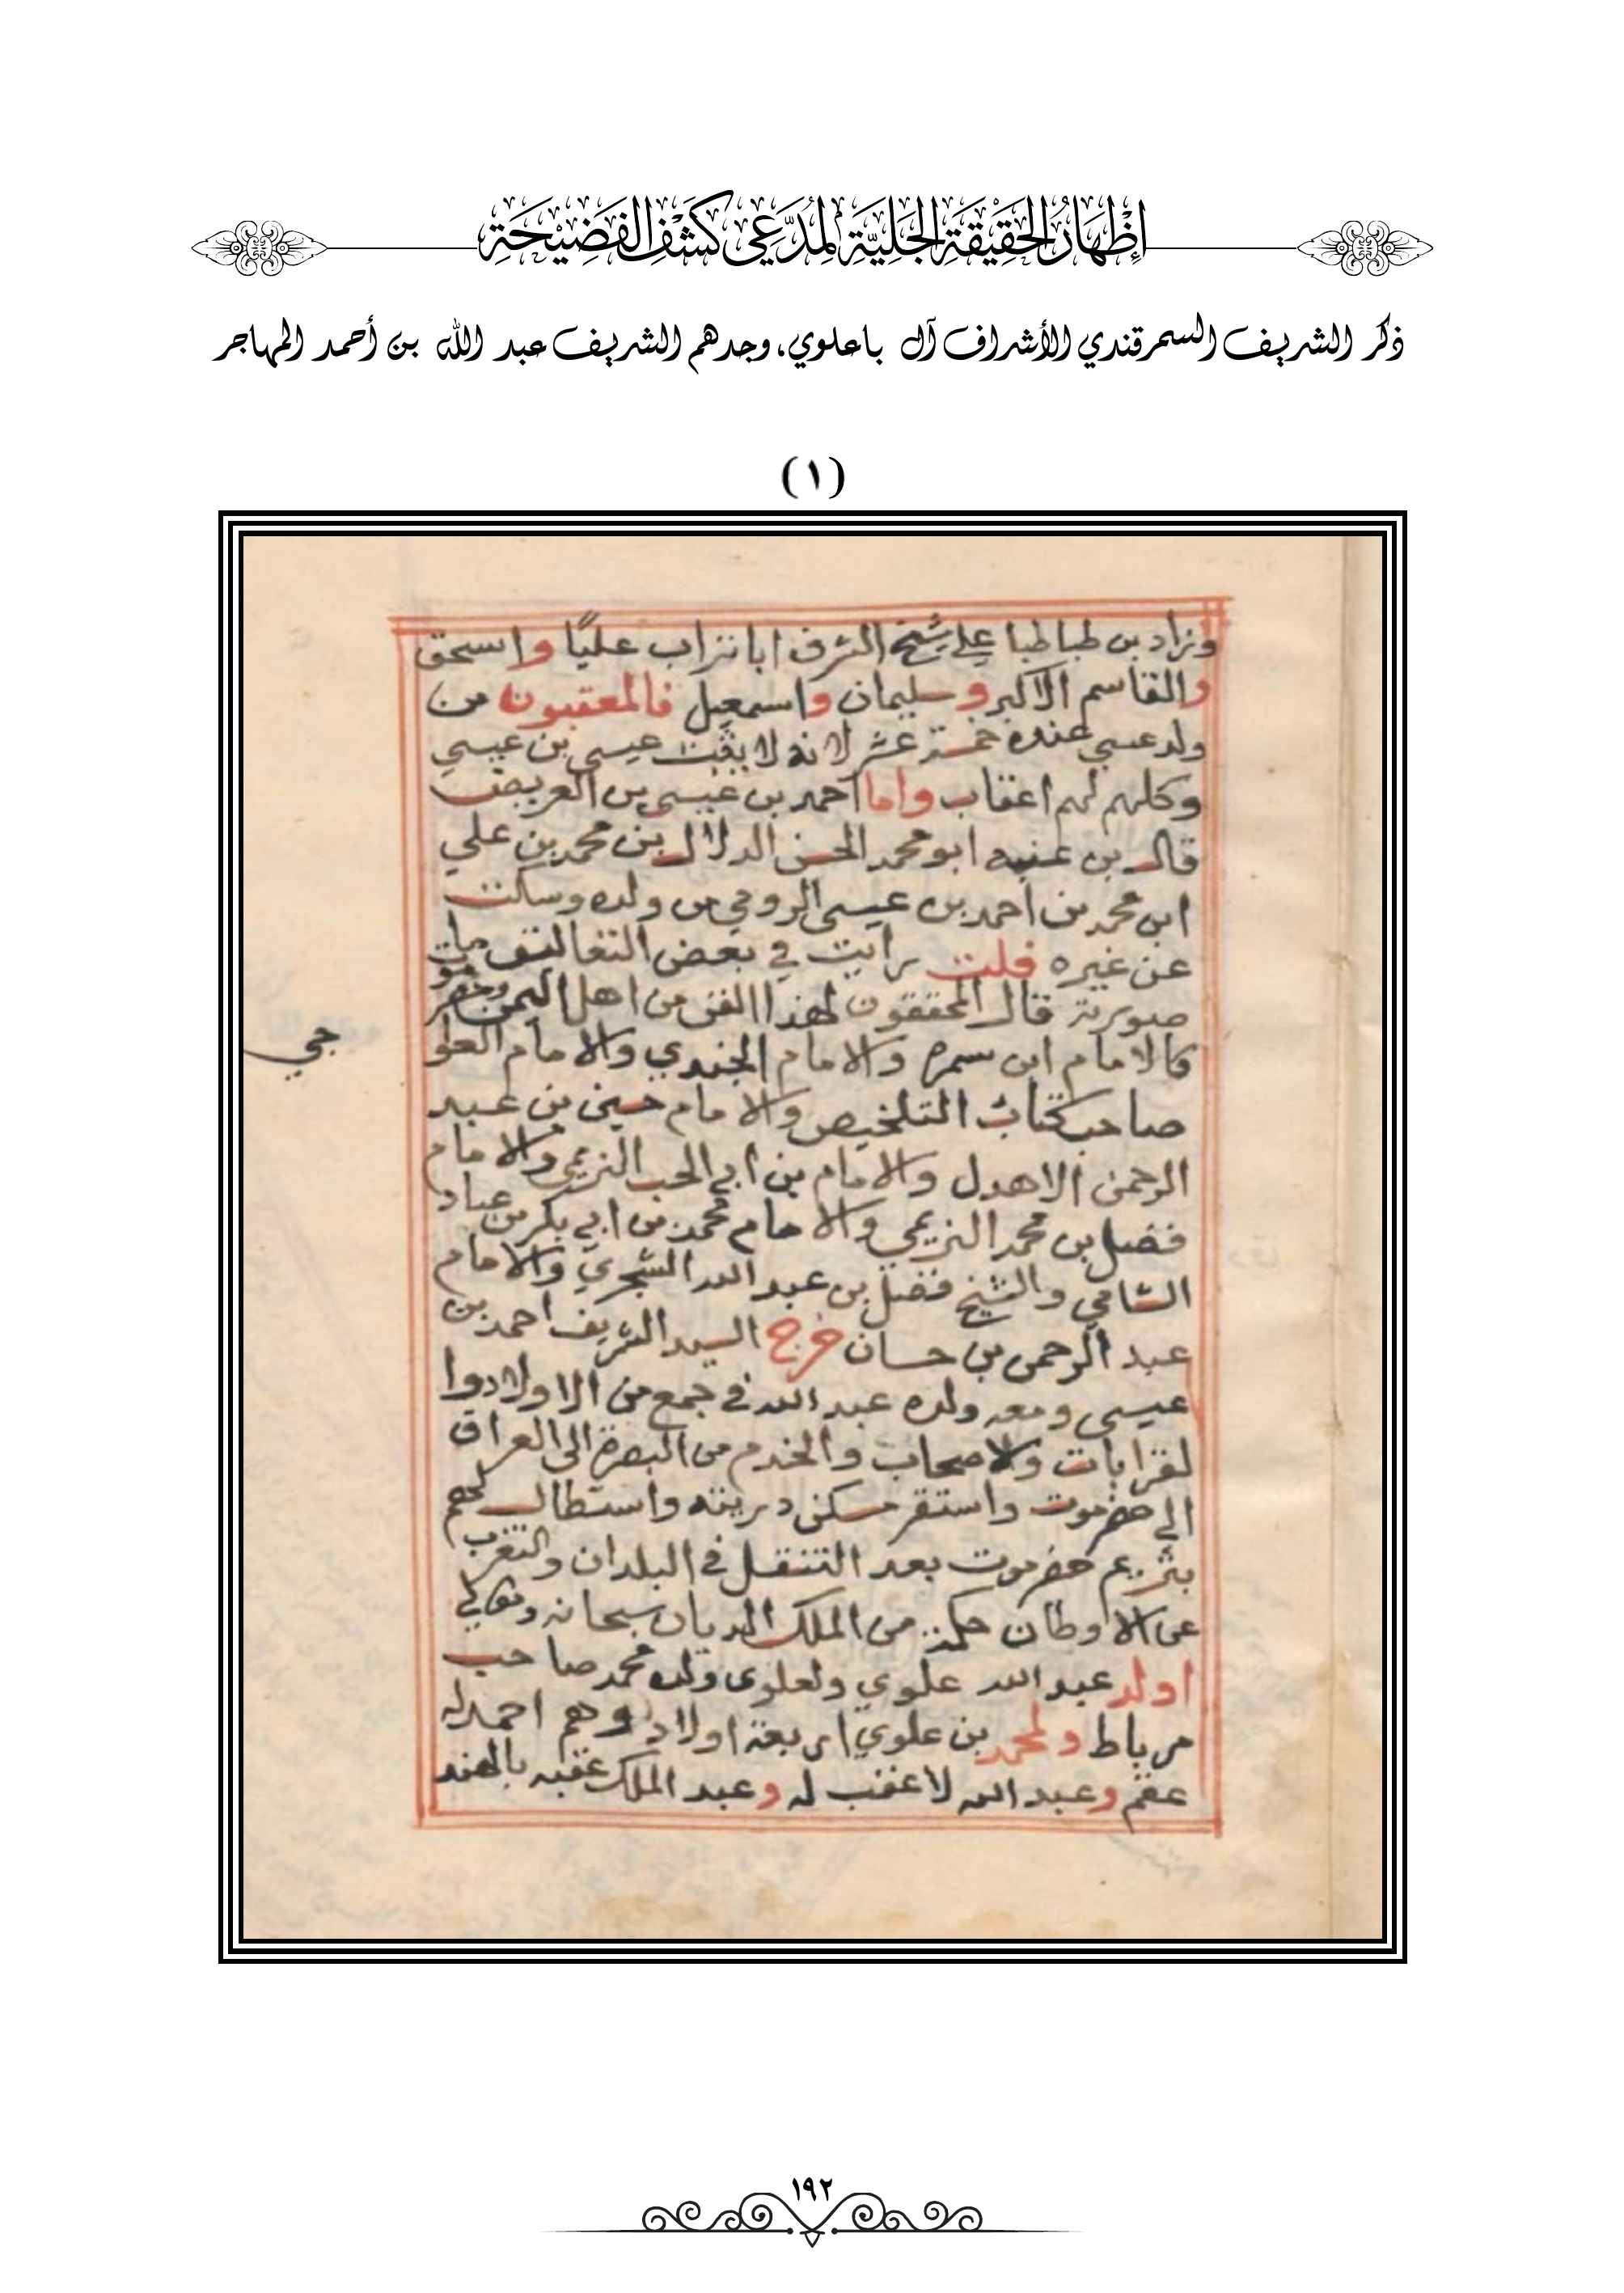 إِظْهَارُ الحَقِيْقَةِ الجَلِيَّةِ لِمُدَّعِي كَشْفِ الفَضِيْحَةِ
ذكر الشريف السمرقندي الأشراف آل باعلوي، وجدهم الشريف عبد الله بن أحمد المهاجر
(١)
وزاد بن طباطبا علي شيخ الشرف ابا تراب عليًا واسحق
والقاسم الاكبر وسليمان واسمعيل فالمعقبون من
ولد عيسي عنده خمسة عشر لانه لا يثبت عيسى بن عيسي
وكلهم لهم اعقاب واما احمد بن عيسى بن العريض
قال بن عنبه ابو محمد الحسن الدلال بن محمد بن علي
ابن محمد بن احمد بن عيسى الرومي من ولده وسالت
عن غيره قلت رايت في بعض التعاليق مات
صورته قال المحققون لهذا الفن من اهل اليمن وحضرموت
كالامام ابن سمره والامام الجندي والامام العلو
جي
صاحب كتاب التلخيص والامام حسين بن عبد
الرحمن الاهدل والامام بن ابي الحب التريمي والامام
فضل بن محمد التريمي والامام محمد بن ابي بكر بن عباد
الشامي والشيخ فضل بن عبد الله الشجري والامام
عبد الرحمن بن حسان خرج السيد الشريف احمد بن
عيسى ومعه ولده عبد الله في جمع من الاولاد وا
لقرابات والاصحاب والخدم من البصرة الى العراق
الي حضرموت واستقر مسكن ذريته واستطال لهم
بتريم حضرموت بعد التنقل في البلدان والتغرب
عن الاوطان حكمة من الملك الديان سبحانه وتعالي
اولد عبد الله علوي ولعلوى ولده محمد صاحب
مرباط ولمحمد بن علوي اربعة اولاد وهم احمد له
عقم وعبد الله لا عقب له وعبد الملك عقبه بالهند
١٩٢